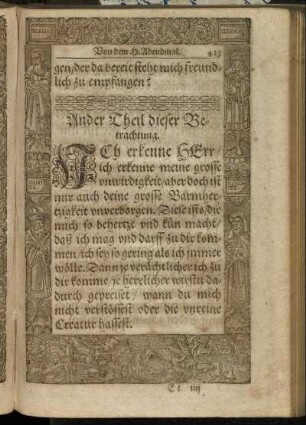 Von dem H. Abendmal.
gen/der da bereit steht mich freund-
lich zu empfangen?
Ander Theil dieser Be-
trachtung.
ICh erkenne HErr/
ich erkenne meine grosse
vnwirdigkeit/aber doch ist
mir auch deine grosse Barmher-
tzigkeit vnverborgen. Diese ists/die
mich so behertzt vnd kün macht/
daß ich mag vnd darff zu dir kom-
men/ich sey so gering als ich jmmer
wölle. Dann je verächtlicher ich zu
dir komme/je herrlicher wirstu da-
durch gepreiset/wann du mich
nicht verstössest oder die vnreine
Creatur hassest.
Ee iiij